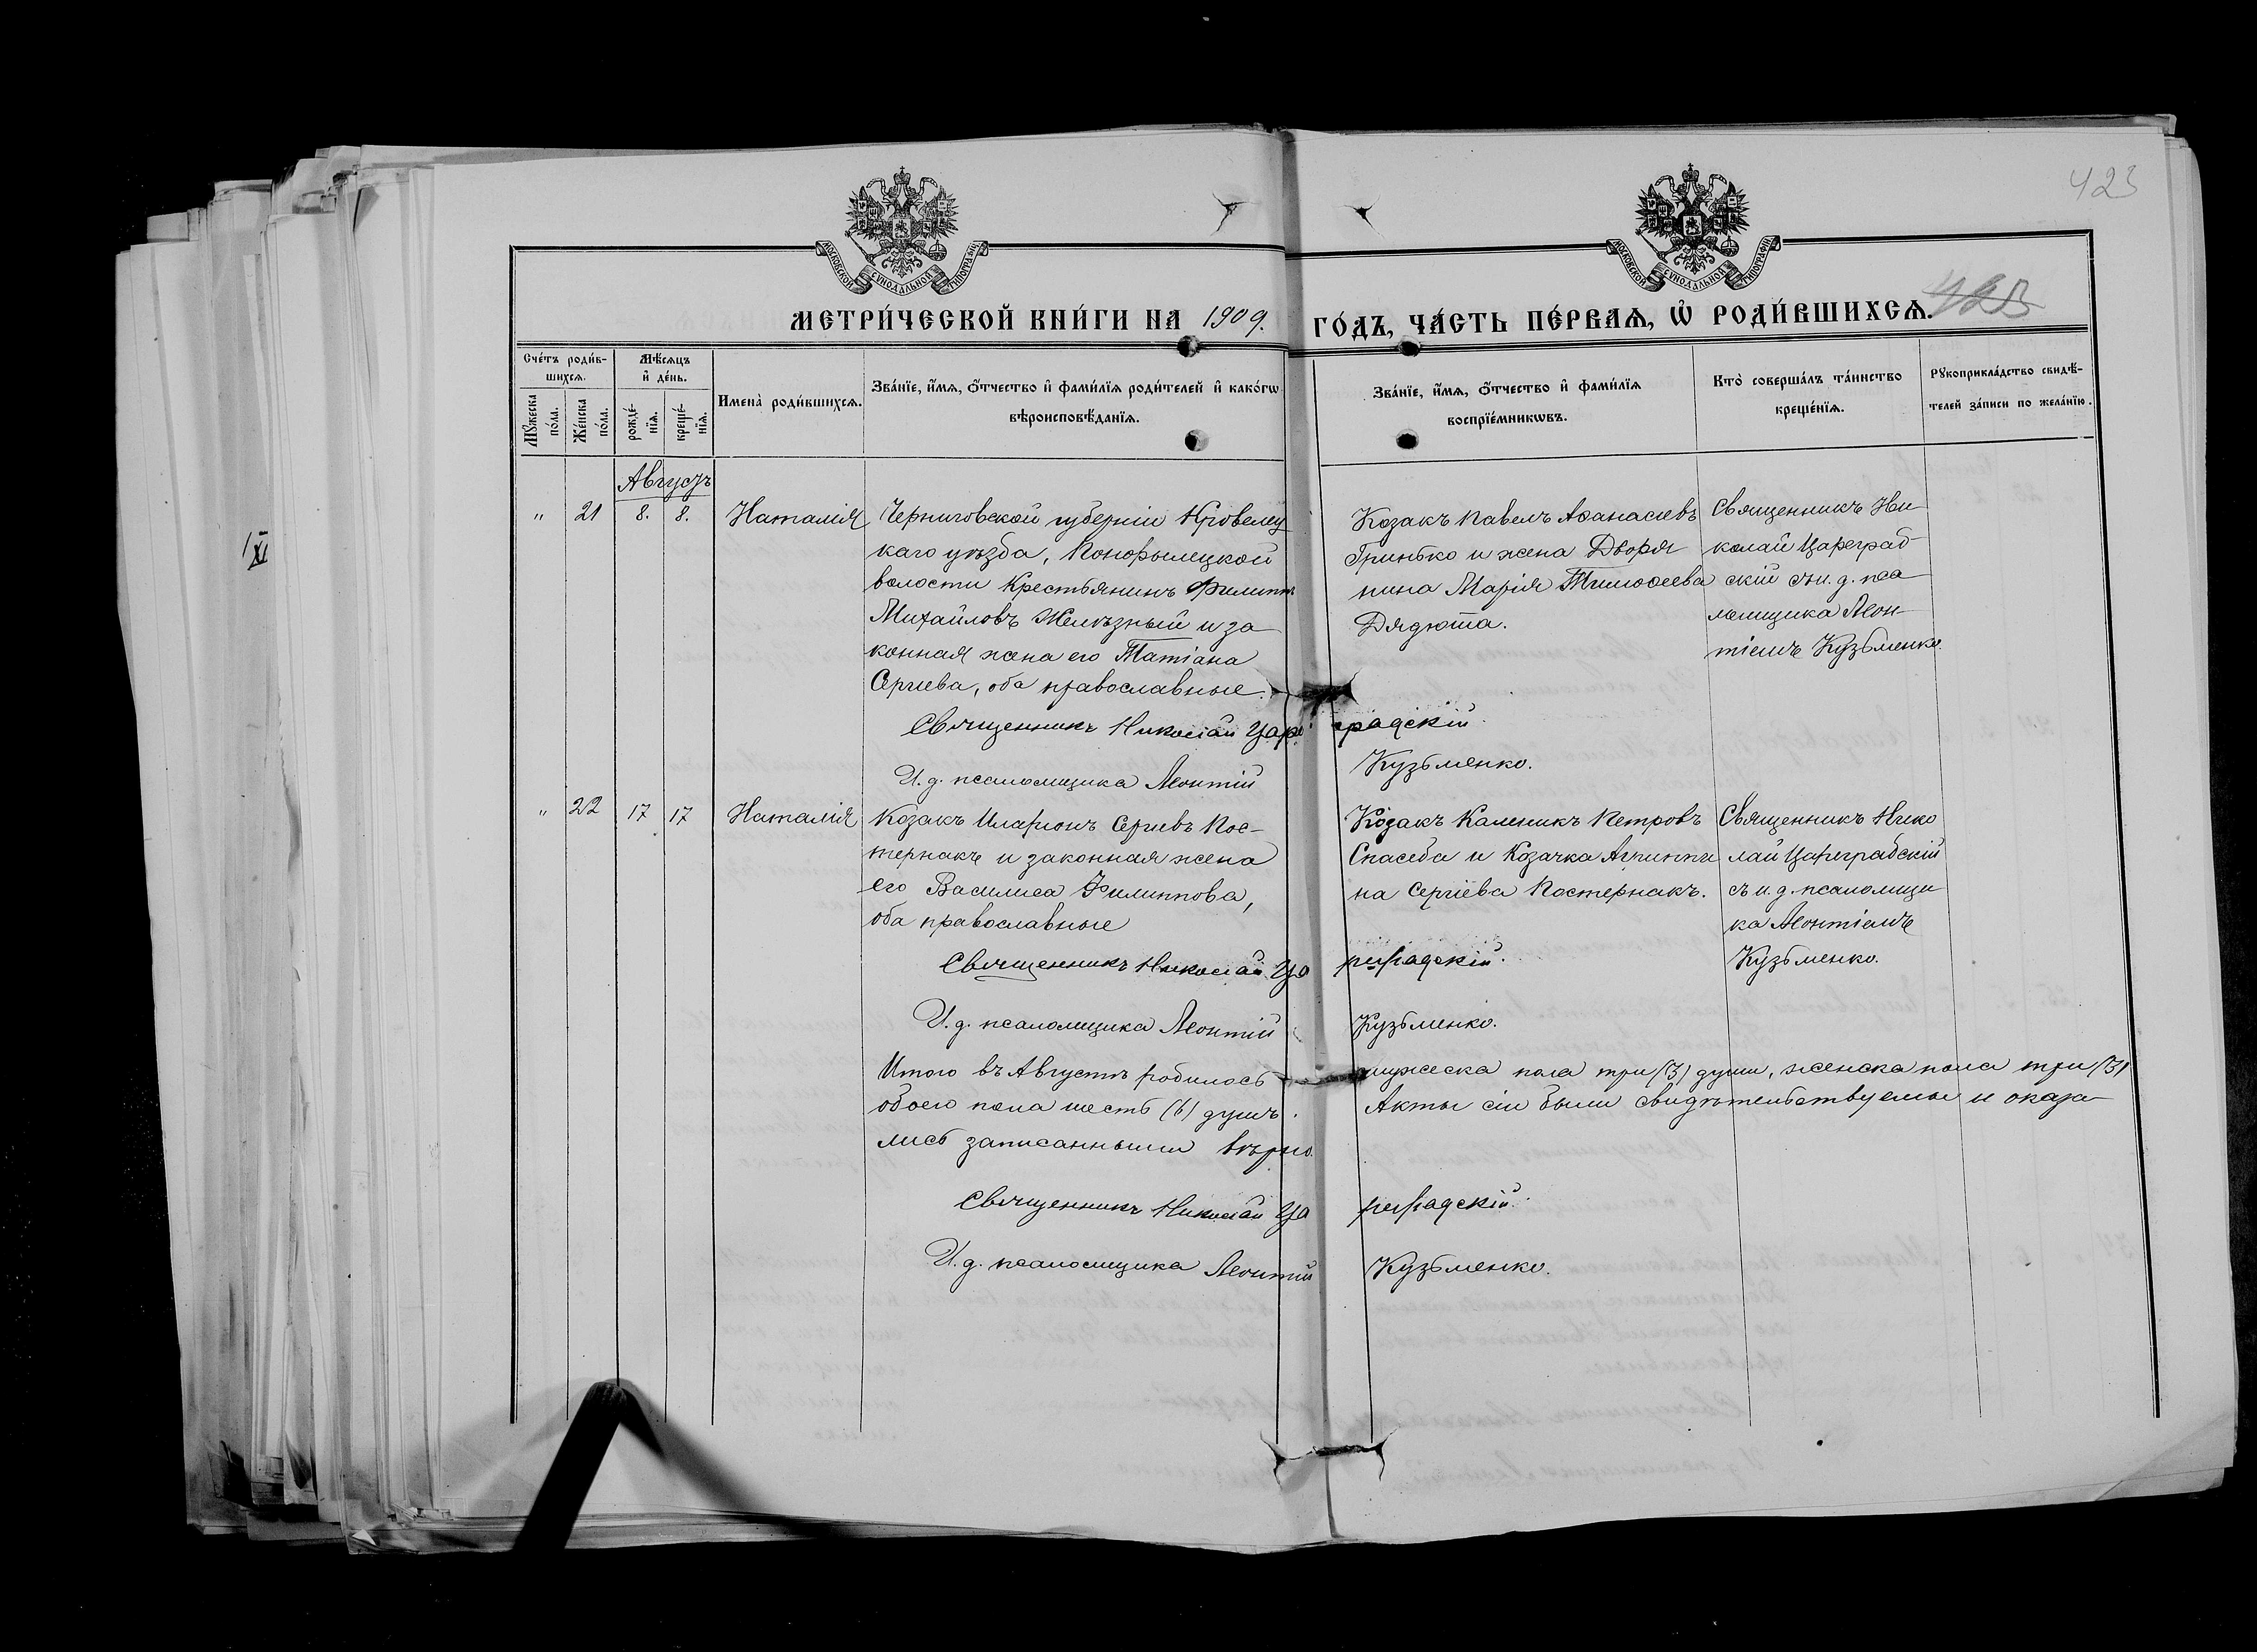 423
МОСКОВСКОЙ СУНОДАЛЬНОЙ ТИПОГРАФІИ
МОСКОВСКОЙ СУНОДАЛЬНОЙ ТИПОГРАФІИ
МЕТРИ́ЧЕСКОЙ КНИ́ГИ НА 1909. ГО́ДЪ, ЧА́СТЬ ПЕ́РВАѦ, Ѡ҆ РОДИ́ВШИХСѦ.
423
Сче́тъ роди́в-
шихсѧ.
Мꙋ́жеска
по́ла.
Же́нска
по́ла.
Мѣ́сѧцъ
и҆ де́нь.
рожде́-
нїѧ.
креще́-
нїѧ.
Имена̀ роди́вшихсѧ.
Зва́нїе, и҆́мѧ, ѻ҆́тчество и҆ фами́лїѧ роди́телей и҆ како́гѡ
вѣроисповѣ́данїѧ.
Зва́нїе, и҆́мѧ, ѻ҆́тчество и҆ фами́лїѧ
воспрїе́мникѡвъ.
Кто̀ соверша́лъ та́инство
креще́нїѧ.
Рꙋкоприкла́дство свидѣ́-
телей за́писи по жела́нїю.
1/XI
Августъ
" 21 8. 8. Наталія
Черниговской губерніи Кролевец
каго уѣзда,
волости Крестьянинъ Филиппъ
Михайловъ Желѣзный и за
конная жена его Татіана
Сергіева, оба православные.
Козакъ Павелъ Аѳанасіевъ
Гринько и жена Дворя
нина Марія Тимоѳеева
Дядюта.
Священникъ Ни
колай Цареград
скій съ и. д. пса
ломщика Леон
тіемъ Кузьменко.
Священникъ Николай Цареградскій.
И. д. псаломщика Леонтій Кузьменко.
" 22 17 17 Наталія
Козакъ Иларіонъ Сергіевъ Пос-
тернакъ и законная жена
его Василиса Филиппова,
оба православные
Козакъ Каленикъ Петровъ
Спасеба и Козачка Агриппи
на Сергіева Постернакъ.
Священникъ Нико
лай Цареградскій
съ и. д. псаломщи
ка Леонтіемъ
Кузьменко.
Священникъ Николай Цареградскій.
И. д. псаломщика Леонтій Кузьменко.
Итого въ Августѣ родилось мужеска пола три (3) души, женска пола три (3)
обоего пола шесть (6) душъ. Акты сіи были свидѣтельствуемы и оказа
лись записанными вѣрно.
Священникъ Николай Цареградскій.
И. д. псаломщика Леонтій Кузьменко.